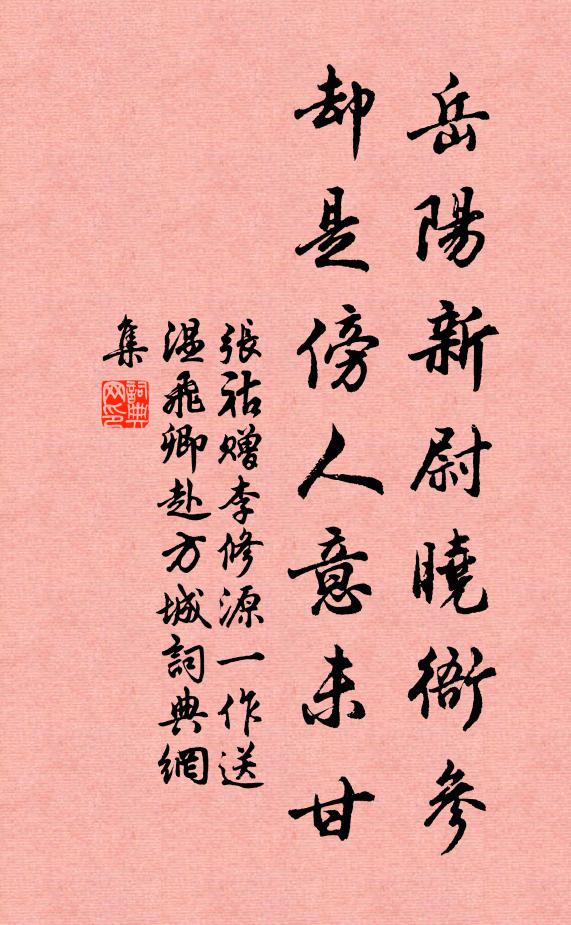 岳陽新尉曉衙參
却是傍人意未甘
張祜贈李修源一作送
溫飛卿赴方城詞典網
集
詞典
网印